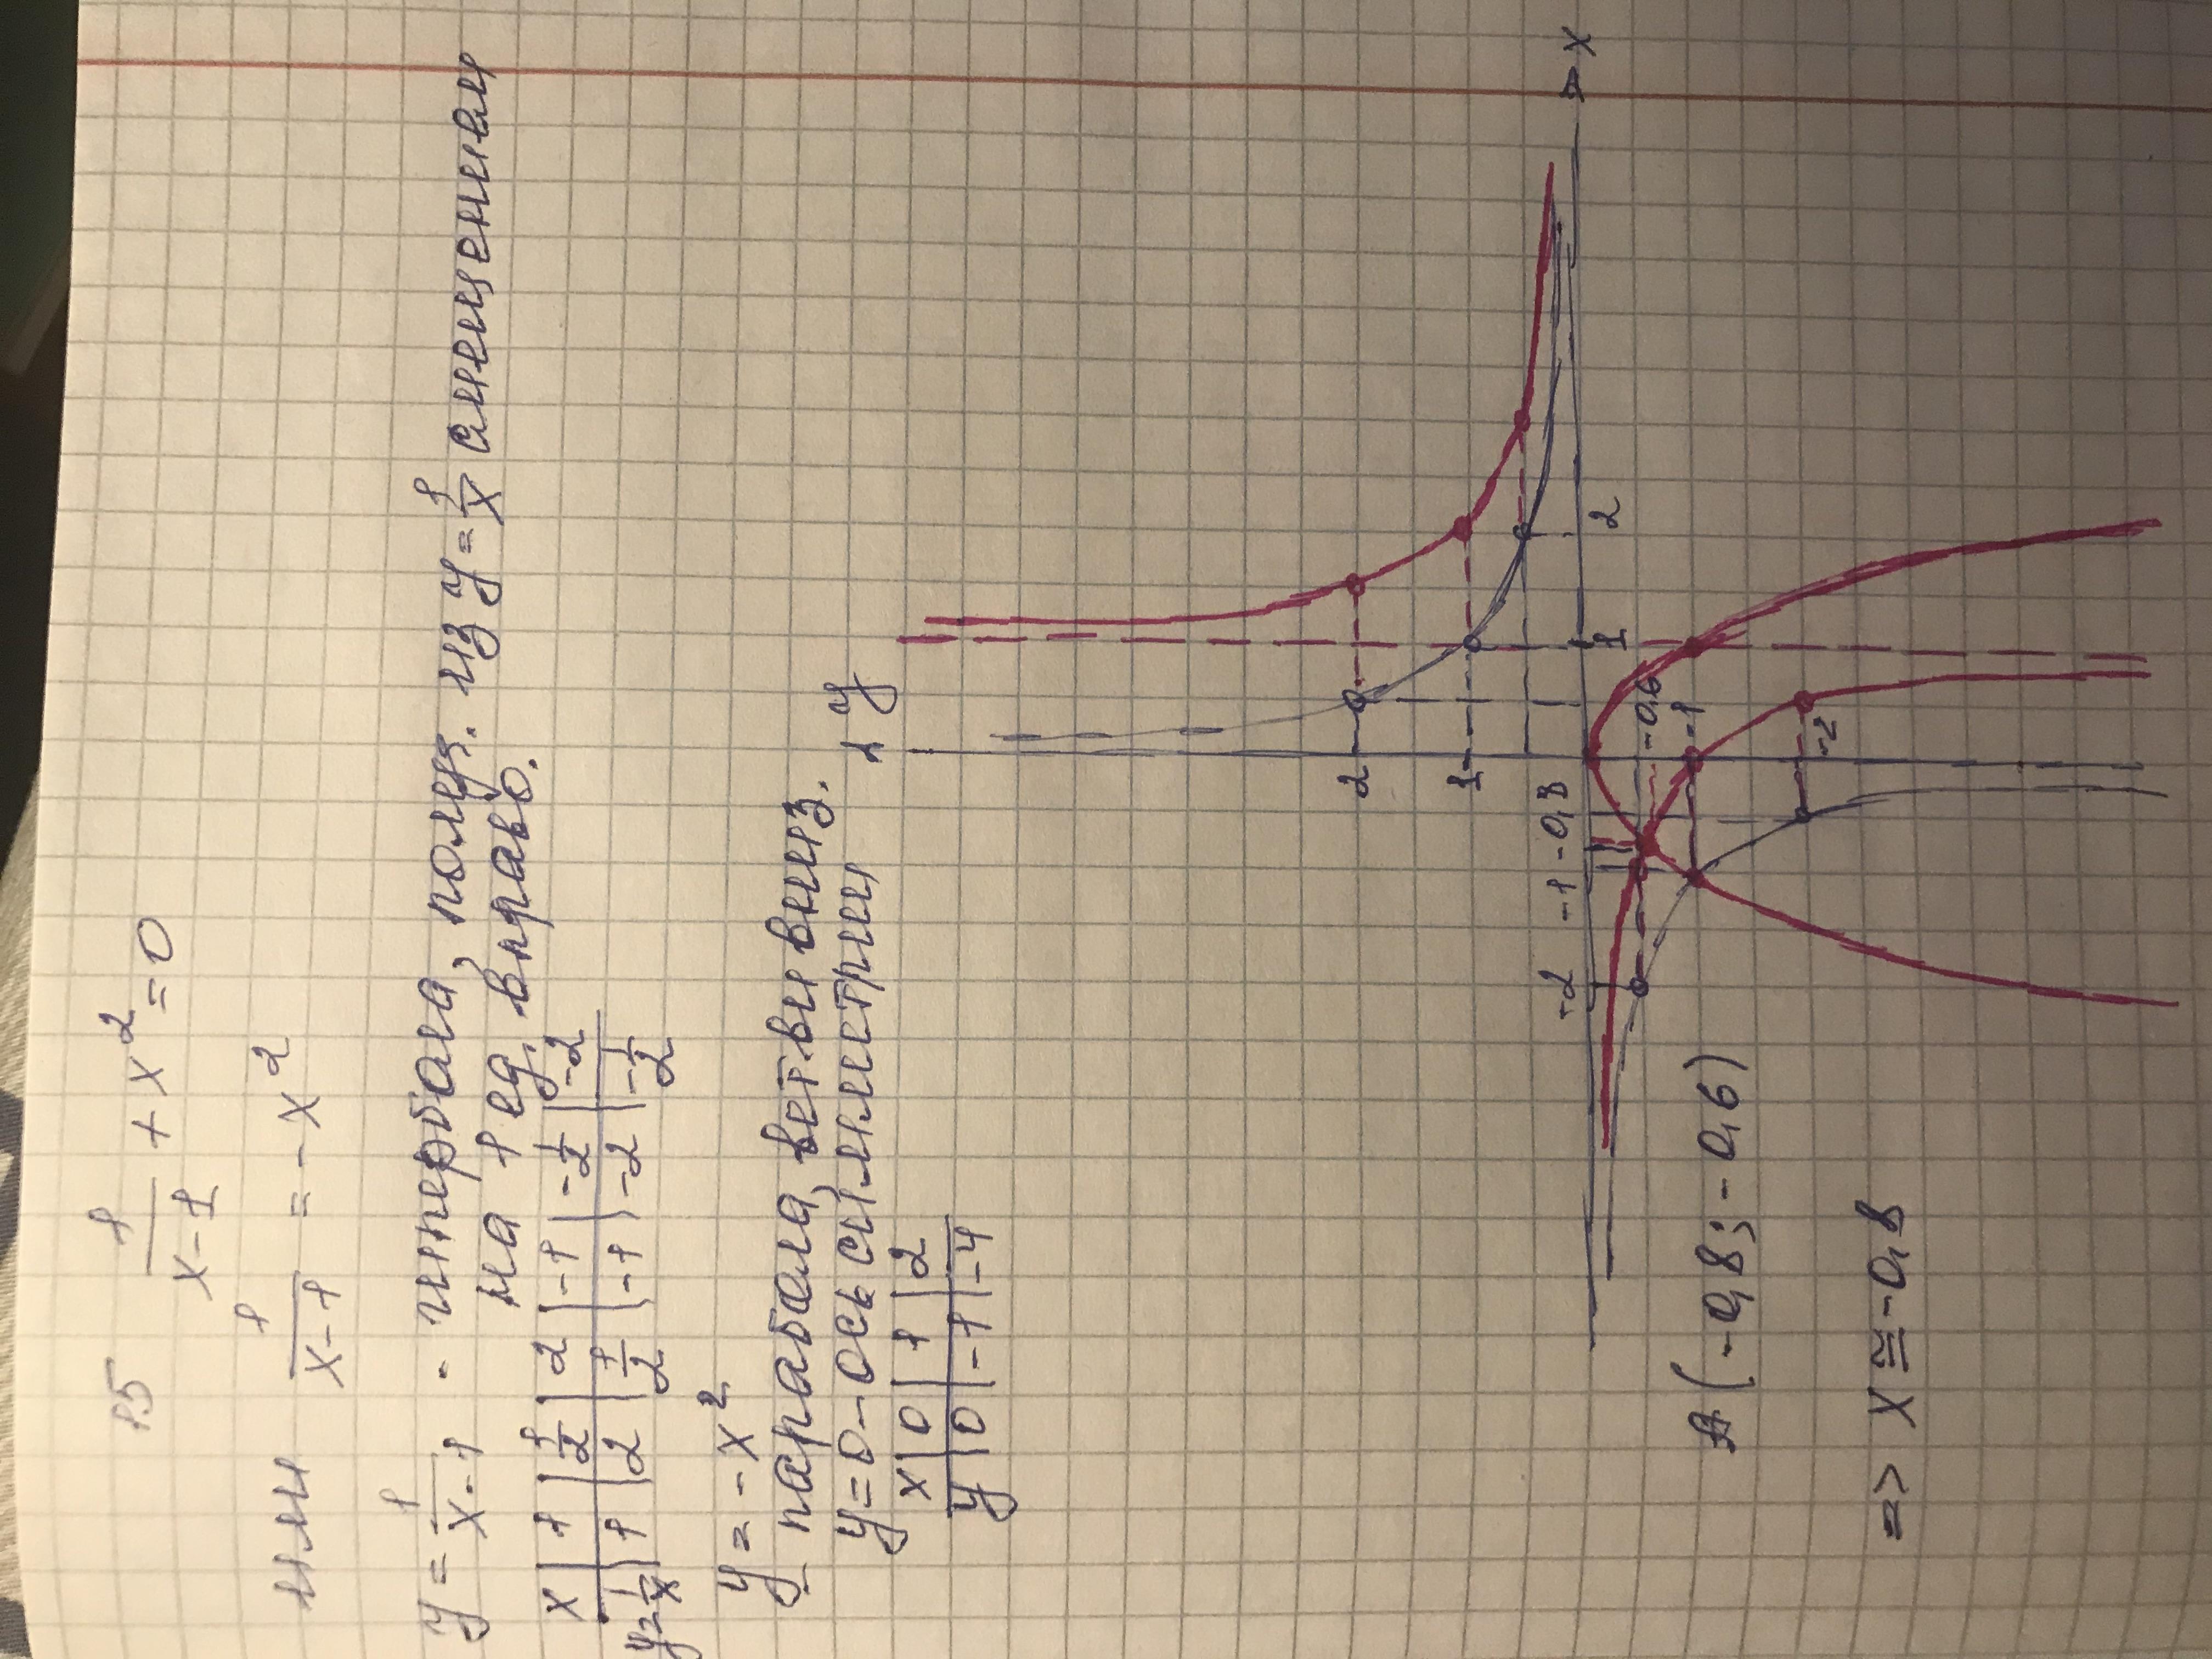 15 1/(x-1) + x² = 0
или 1/(x-1) = -x²
y = 1/(x-1) - гипербола, получ. из y = 1/x смещением
на 1 ед. вправо.
x | 1 | 1/2 | 2 | -1 | -1/2 | -2
y=1/x | 1 | 2 | 1/2 | -1 | -2 | -1/2
y = -x²
- парабола, ветви вниз.
y=0-ось симметрии
x | 0 | 1 | 2
y | 0 | -1 | -4
y
2
1
-2 -1 -0,8 1 2 x
-0,6
-1
-2
A (-0,8; -0,6)
=> x ≅ -0,8